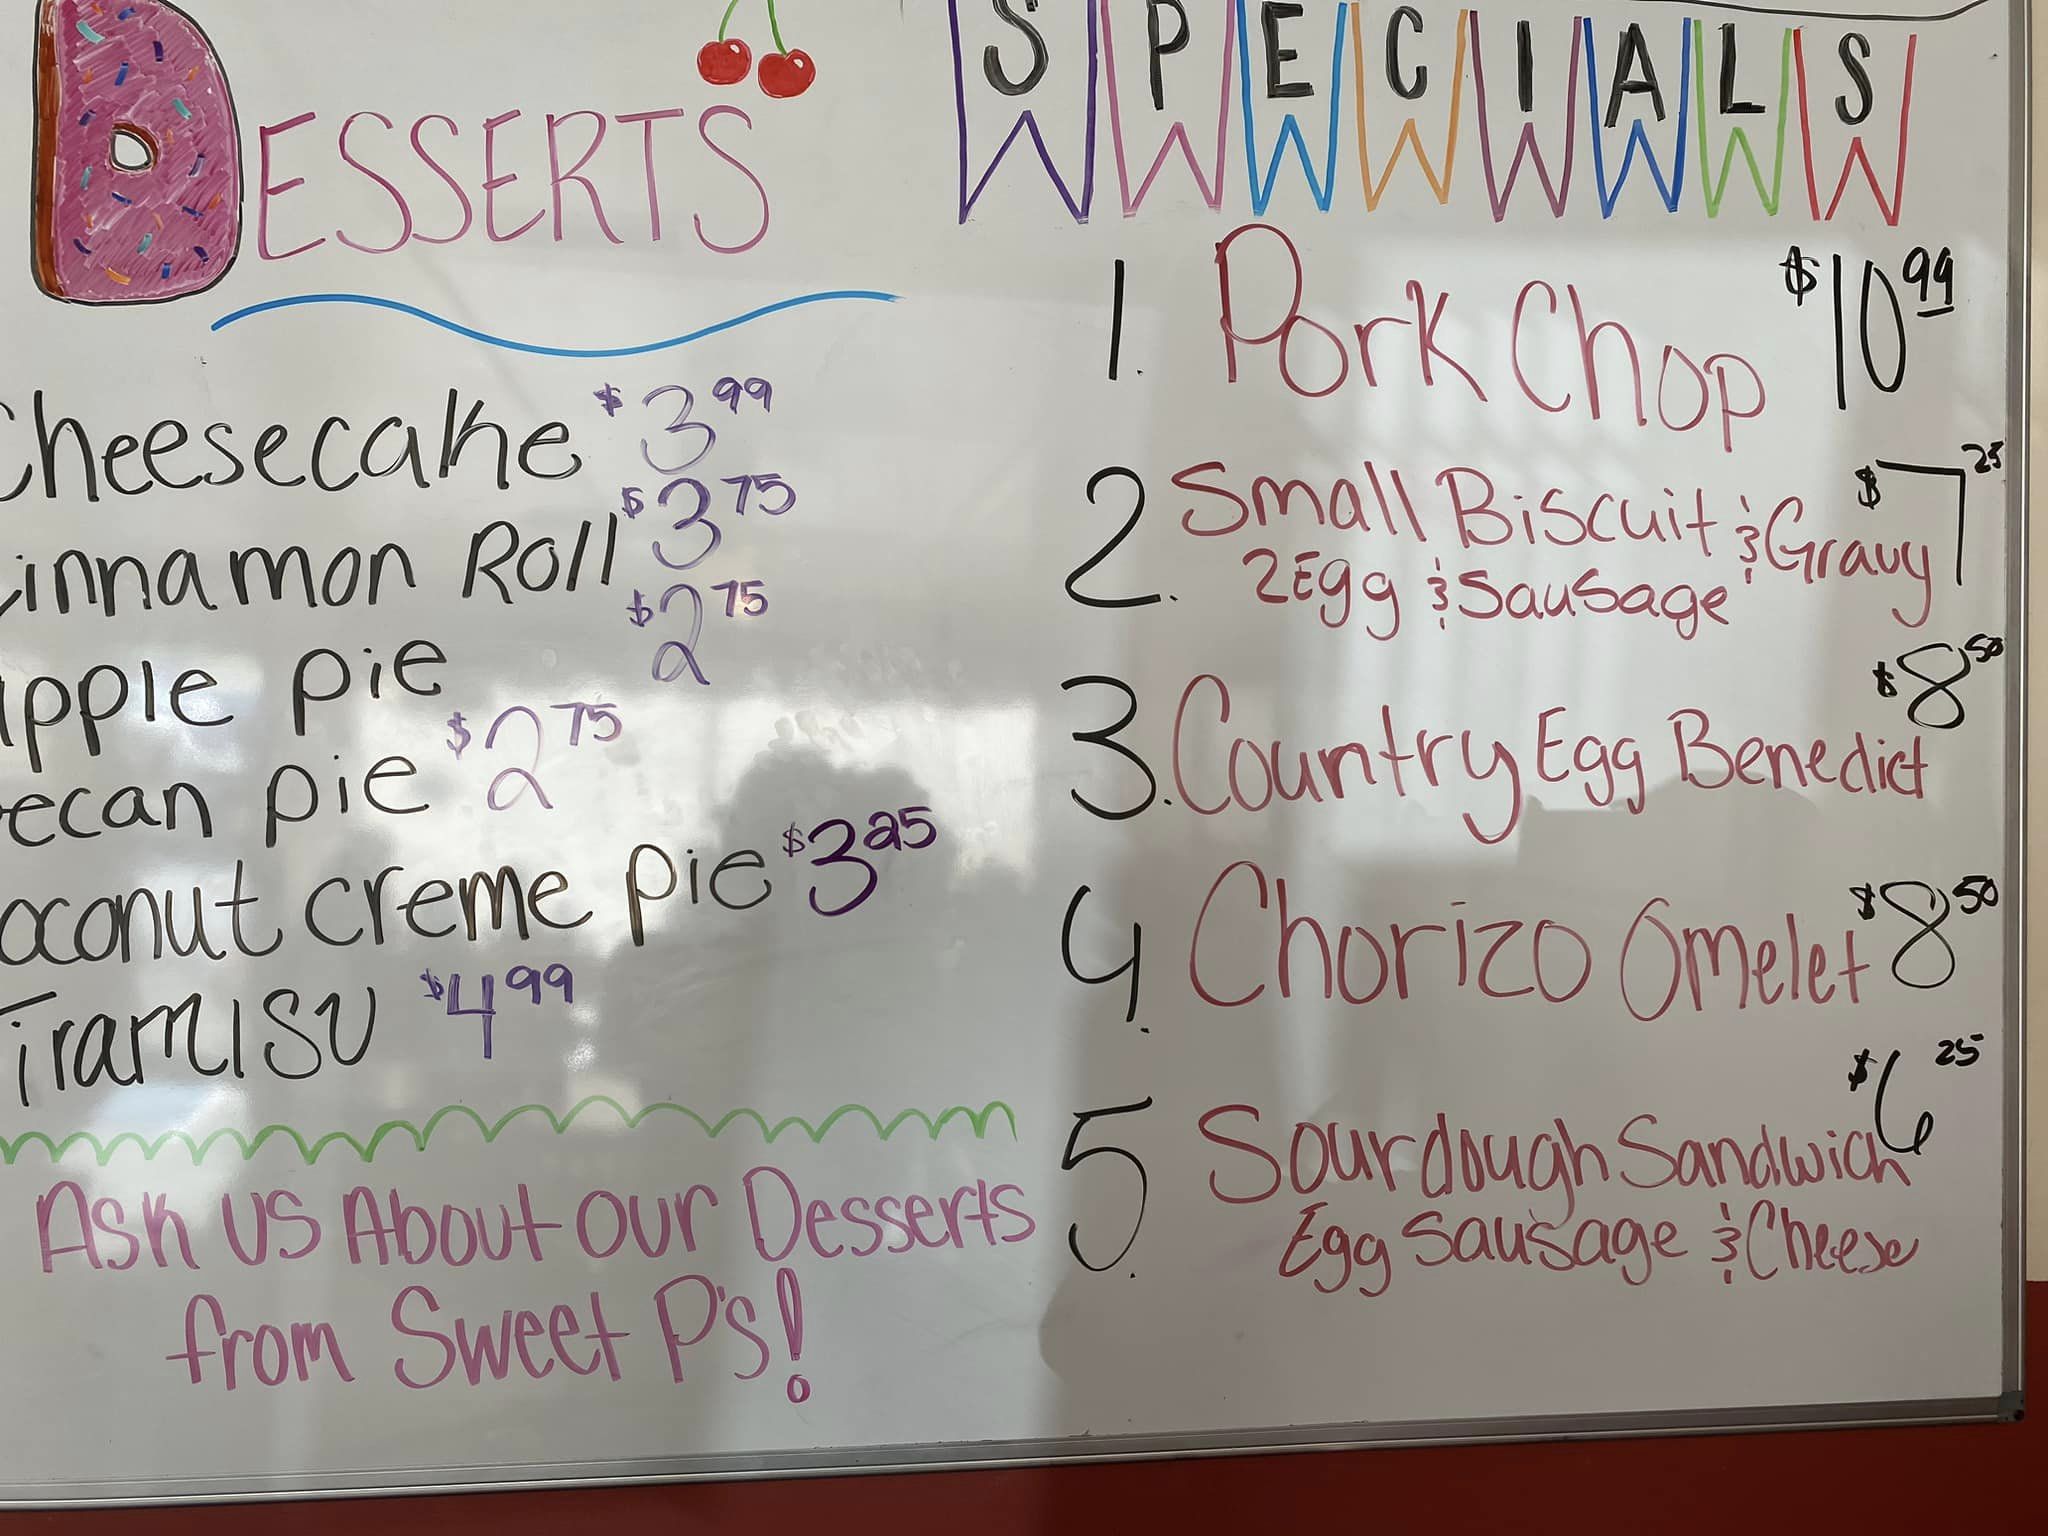 DESSERTS
Cheesecake $3.99
Cinnamon Roll $3.75
Apple pie $2.75
Pecan pie $2.75
Coconut creme pie $3.25
TiramISU $4.99
Ask US About our Desserts
from Sweet P's!
SPECIALS
1. Pork Chop $10.99
2. Small Biscuit & Gravy $7.25
2 Egg & Sausage
3. Country Egg Benedict $8.50
4. Chorizo Omelet $8.50
5. Sourdough Sandwich $6.25
Egg Sausage & Cheese